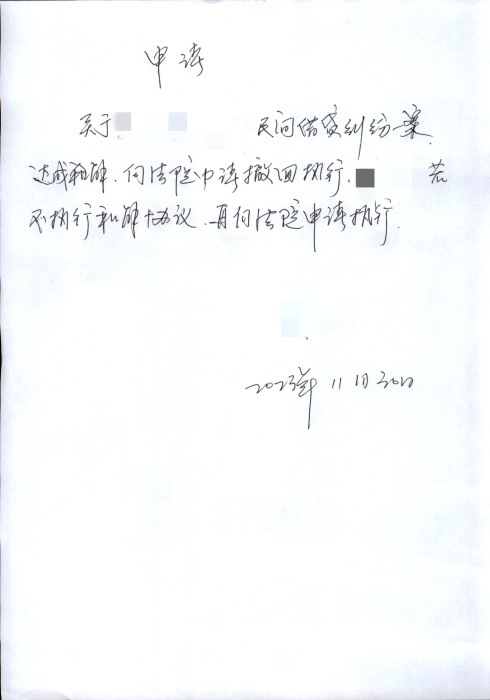 申请
关于 民间借贷纠纷一案.
达成和解.向法院申请撤回执行. 若
不执行和解协议.再向法院申请执行.
2023年11月30日